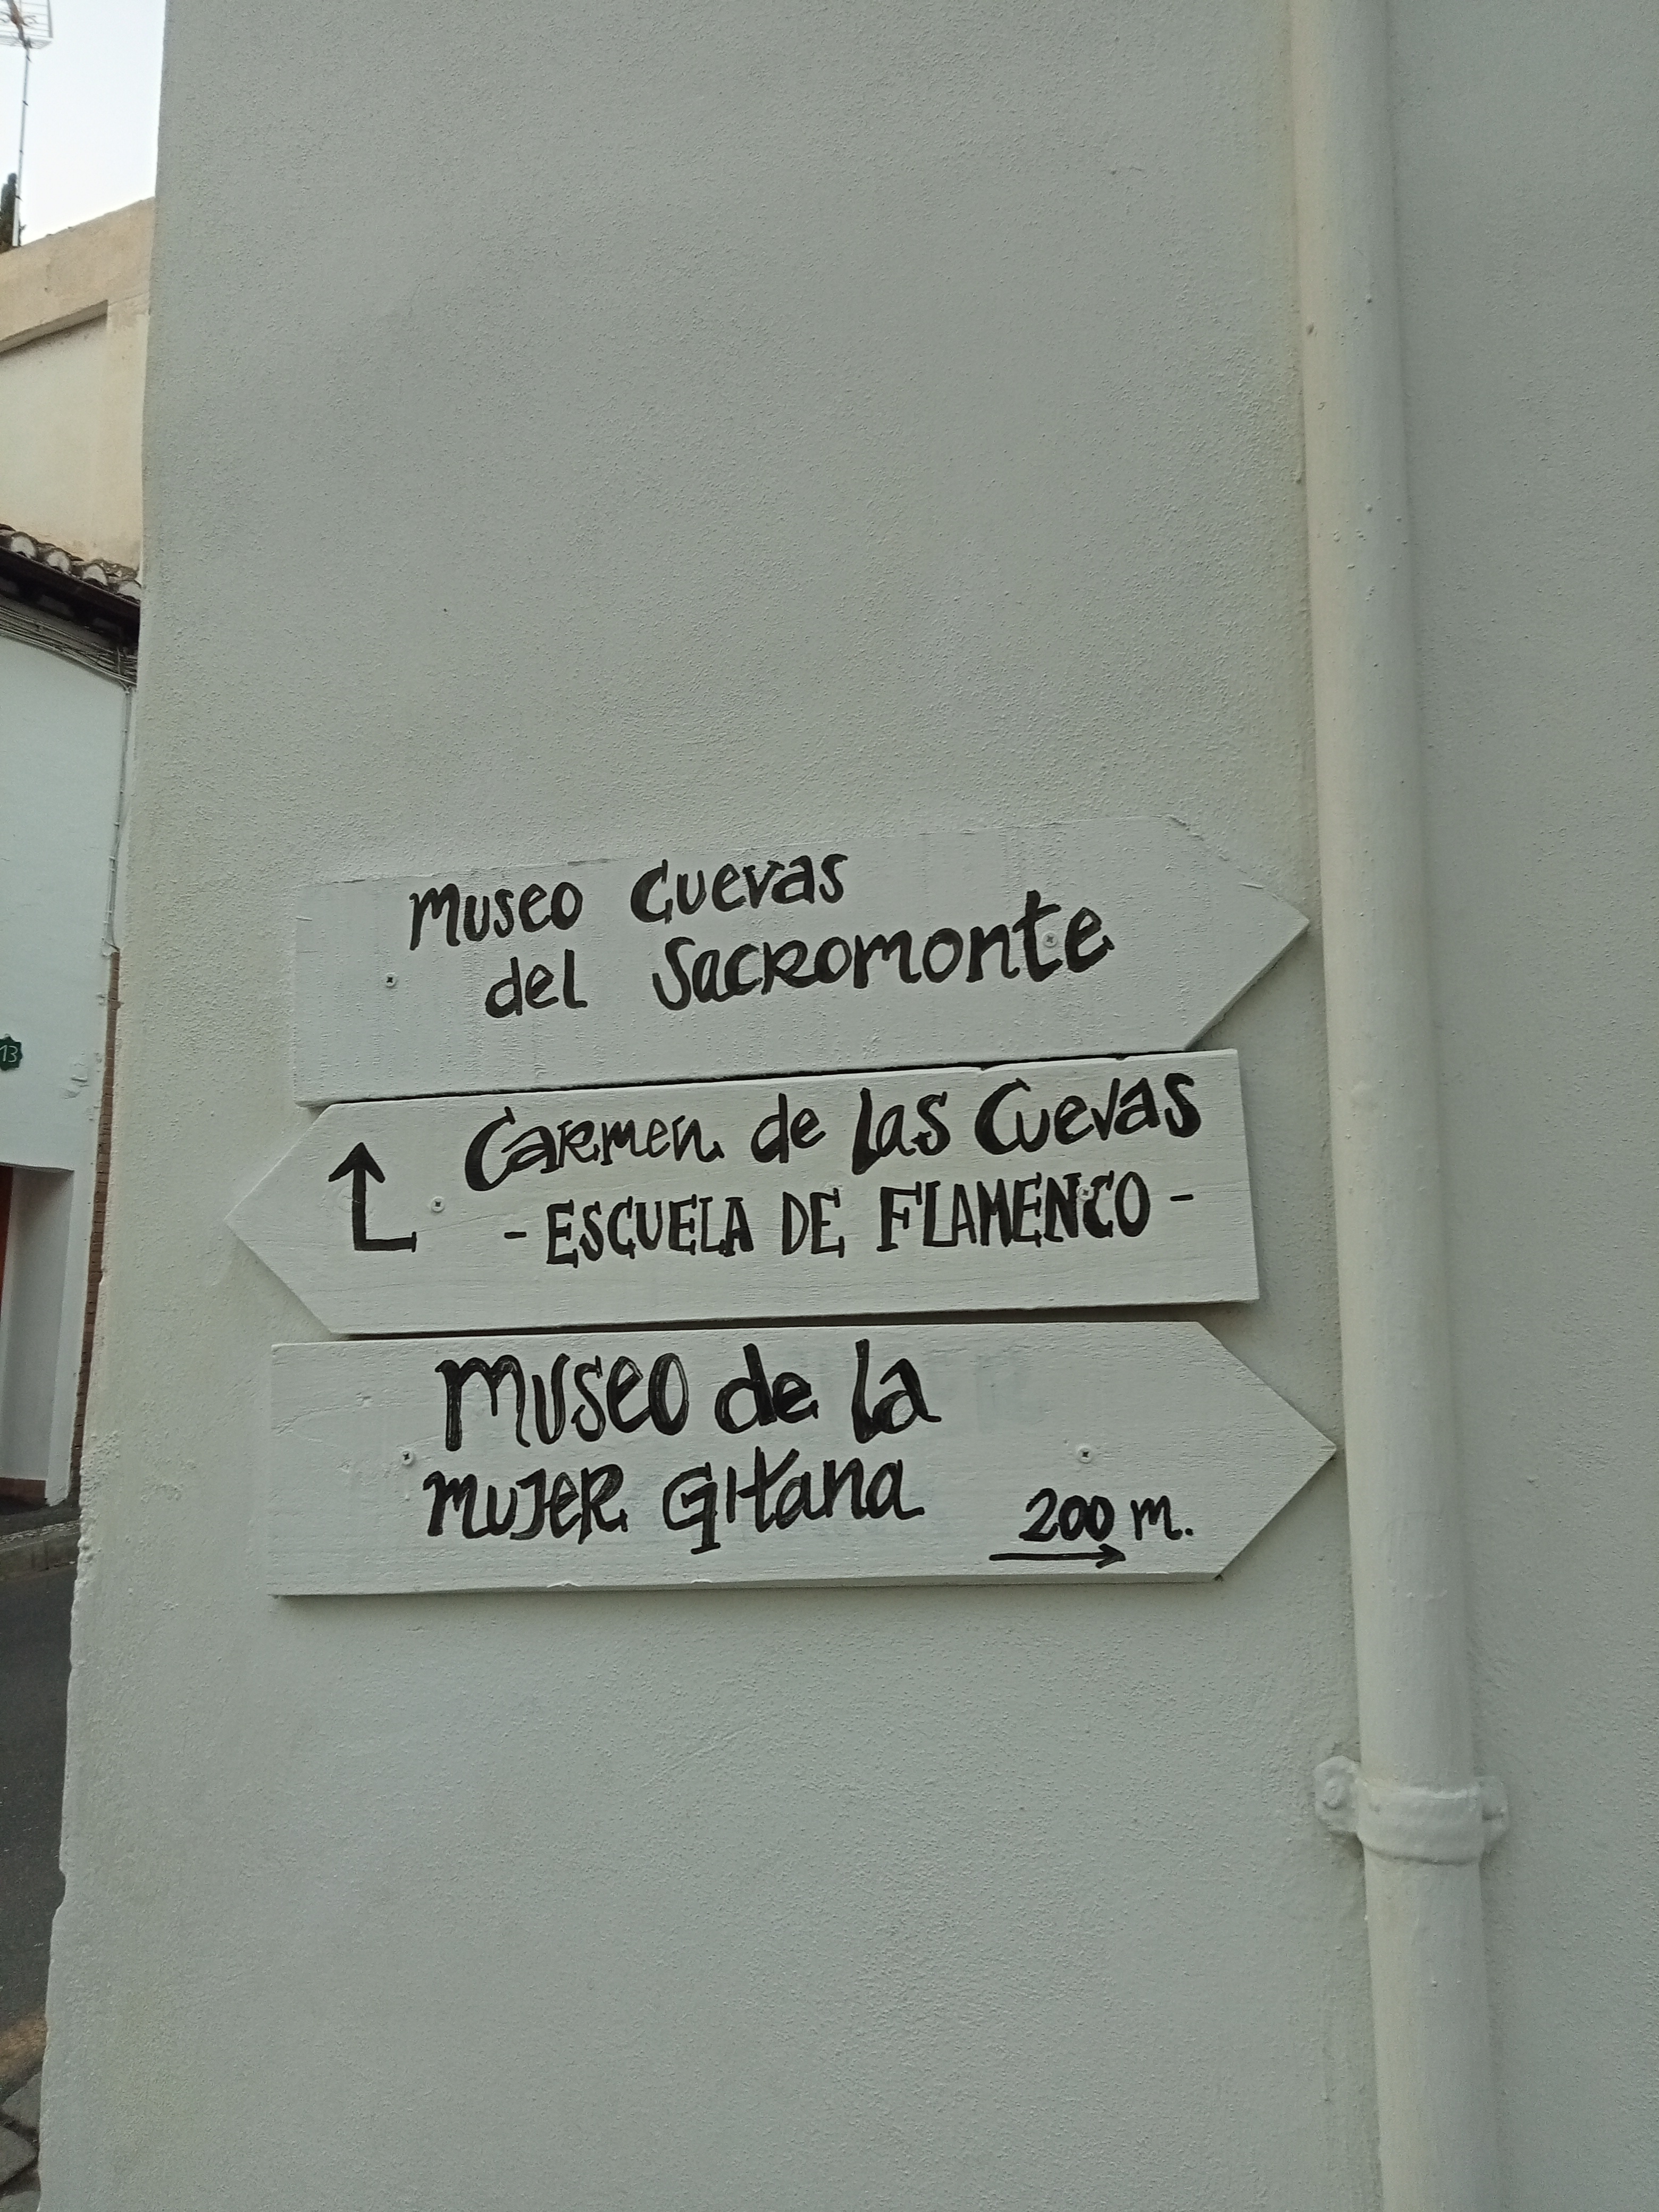 Museo Cuevas
del Sacromonte
Carmen de las Cuevas
- ESCUELA DE FLAMENCO -
Museo de la
Mujer Gitana
200 m.
13